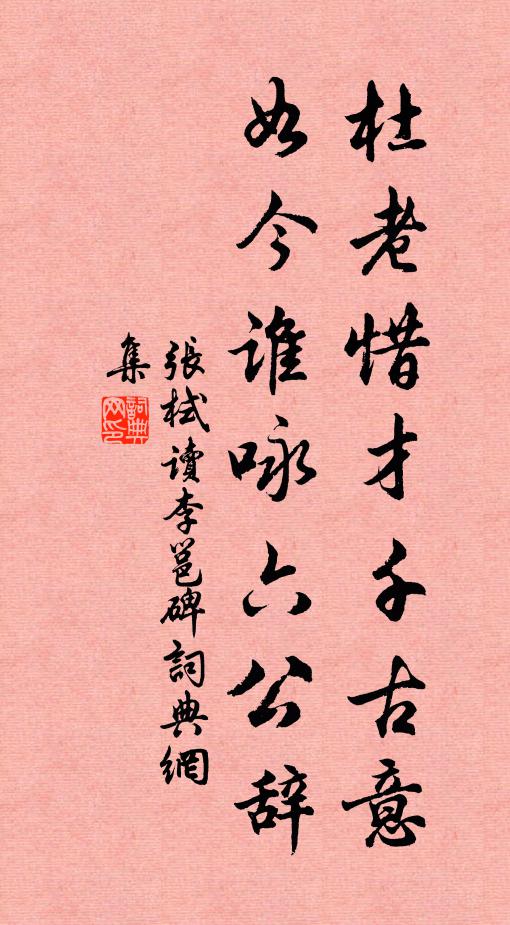 杜老惜才千古意
如今誰咏六公辞
張栻讀李邕碑詞典網
集
詞典
网印